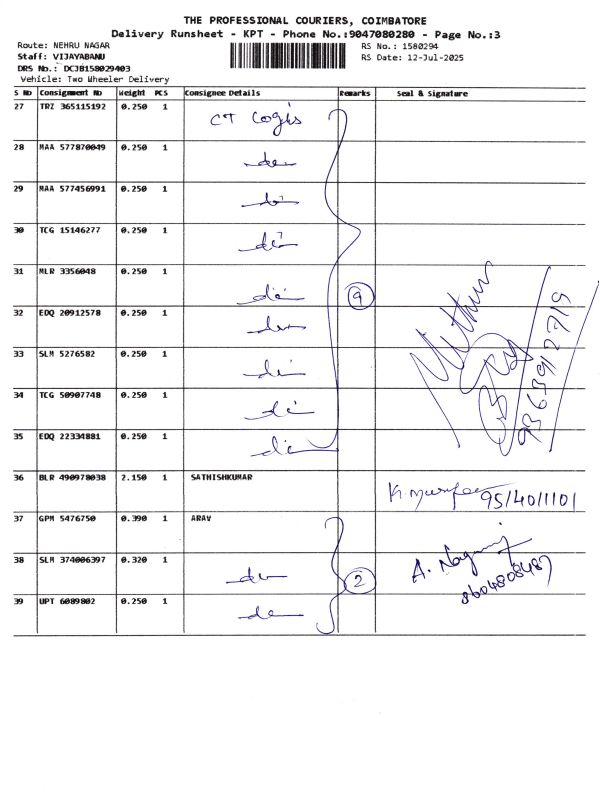 THE PROFESSIONAL COURIERS, COIMBATORE
Delivery Runsheet - KPT - Phone No.:9047080280 - Page No.:3
Route: NEHRU NAGAR
RS No.: 1580294
Staff: VIJAYABANU
RS Date: 12-Jul-2025
DRS No.: DCJB158029403
Vehicle: Two Wheeler Delivery
S NO Consignment No Weight PCS Consignee Details Remarks Seal & Signature
27 TRZ 365115192 0.250 1 CT Logis
28 MAA 577870049 0.250 1
29 MAA 577456991 0.250 1
30 TCG 15146277 0.250 1
31 MLR 3356048 0.250 1 9
32 EDQ 20912578 0.250 1
33 SLM 5276582 0.250 1
34 TCG 50907748 0.250 1
35 EDQ 22334881 0.250 1
36 BLR 490978038 2.150 1 SATHISHKUMAR
37 GPM 5476750 0.390 1 ARAV
38 SLM 374006397 0.320 1 2
39 UPT 6089802 0.250 1
Mithun
9363912719
95/40/1101
8604808487